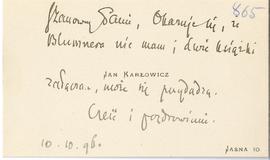 865
Szanowny Panie, Okazuje się, że
Blumnera nie mam; dwie książki
JAN KARŁOWICZ
może się przydadzą.
Cześć i pozdrowienie.
10.10.96.
JASNA 10